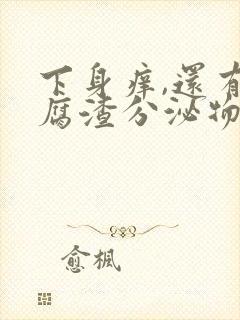 下身痒,還有
腐渣分泌物
愈楓